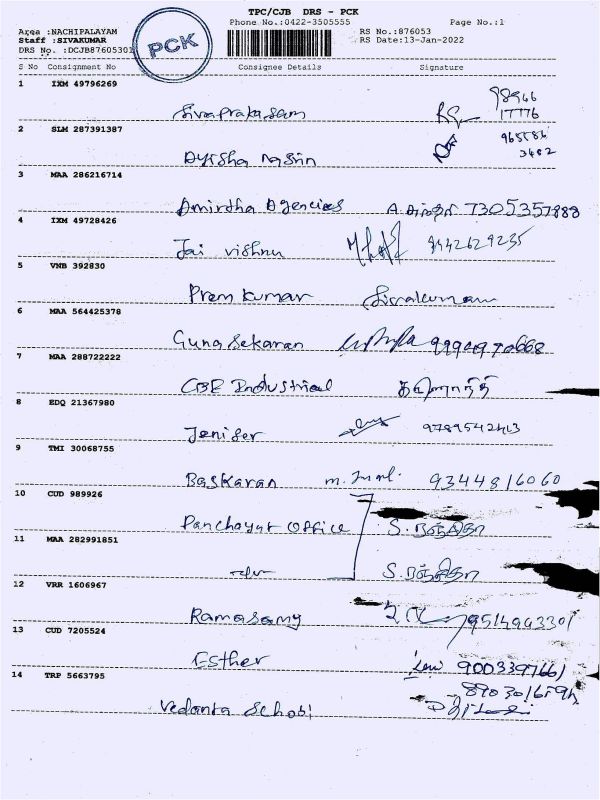 TPC/CJB DRS - PCK
Area :NACHIPALAYAM
Phone No.:0422-3505555
Page No.:1
Staff :SIVAKUMAR
RS No.:876053
DRS No. :DCJB87605301
RS Date:13-Jan-2022
PCK
S No Consignment No Consignee Details Signature
1 IXM 49796269
Sivaprakasam
17776
2 SLM 287391387
3 MAA 286216714
Amirtha Agencies 7305357888
4 IXM 49728426
Jai vishnu 9442629235
5 VNB 392830
Prem kumar Sivakumar
6 MAA 564425378
Guna Sekaran
7 MAA 288722222
CBE Industrial
8 EDQ 21367980
Jenifer 9789542413
9 TMI 30068755
Baskaran 9344816060
10 CUD 989926
Panchayat Office
11 MAA 282991851
12 VRR 1606967
Ramasamy
13 CUD 7205524
Esther 9003397661
14 TRP 5663795
Vedanta School